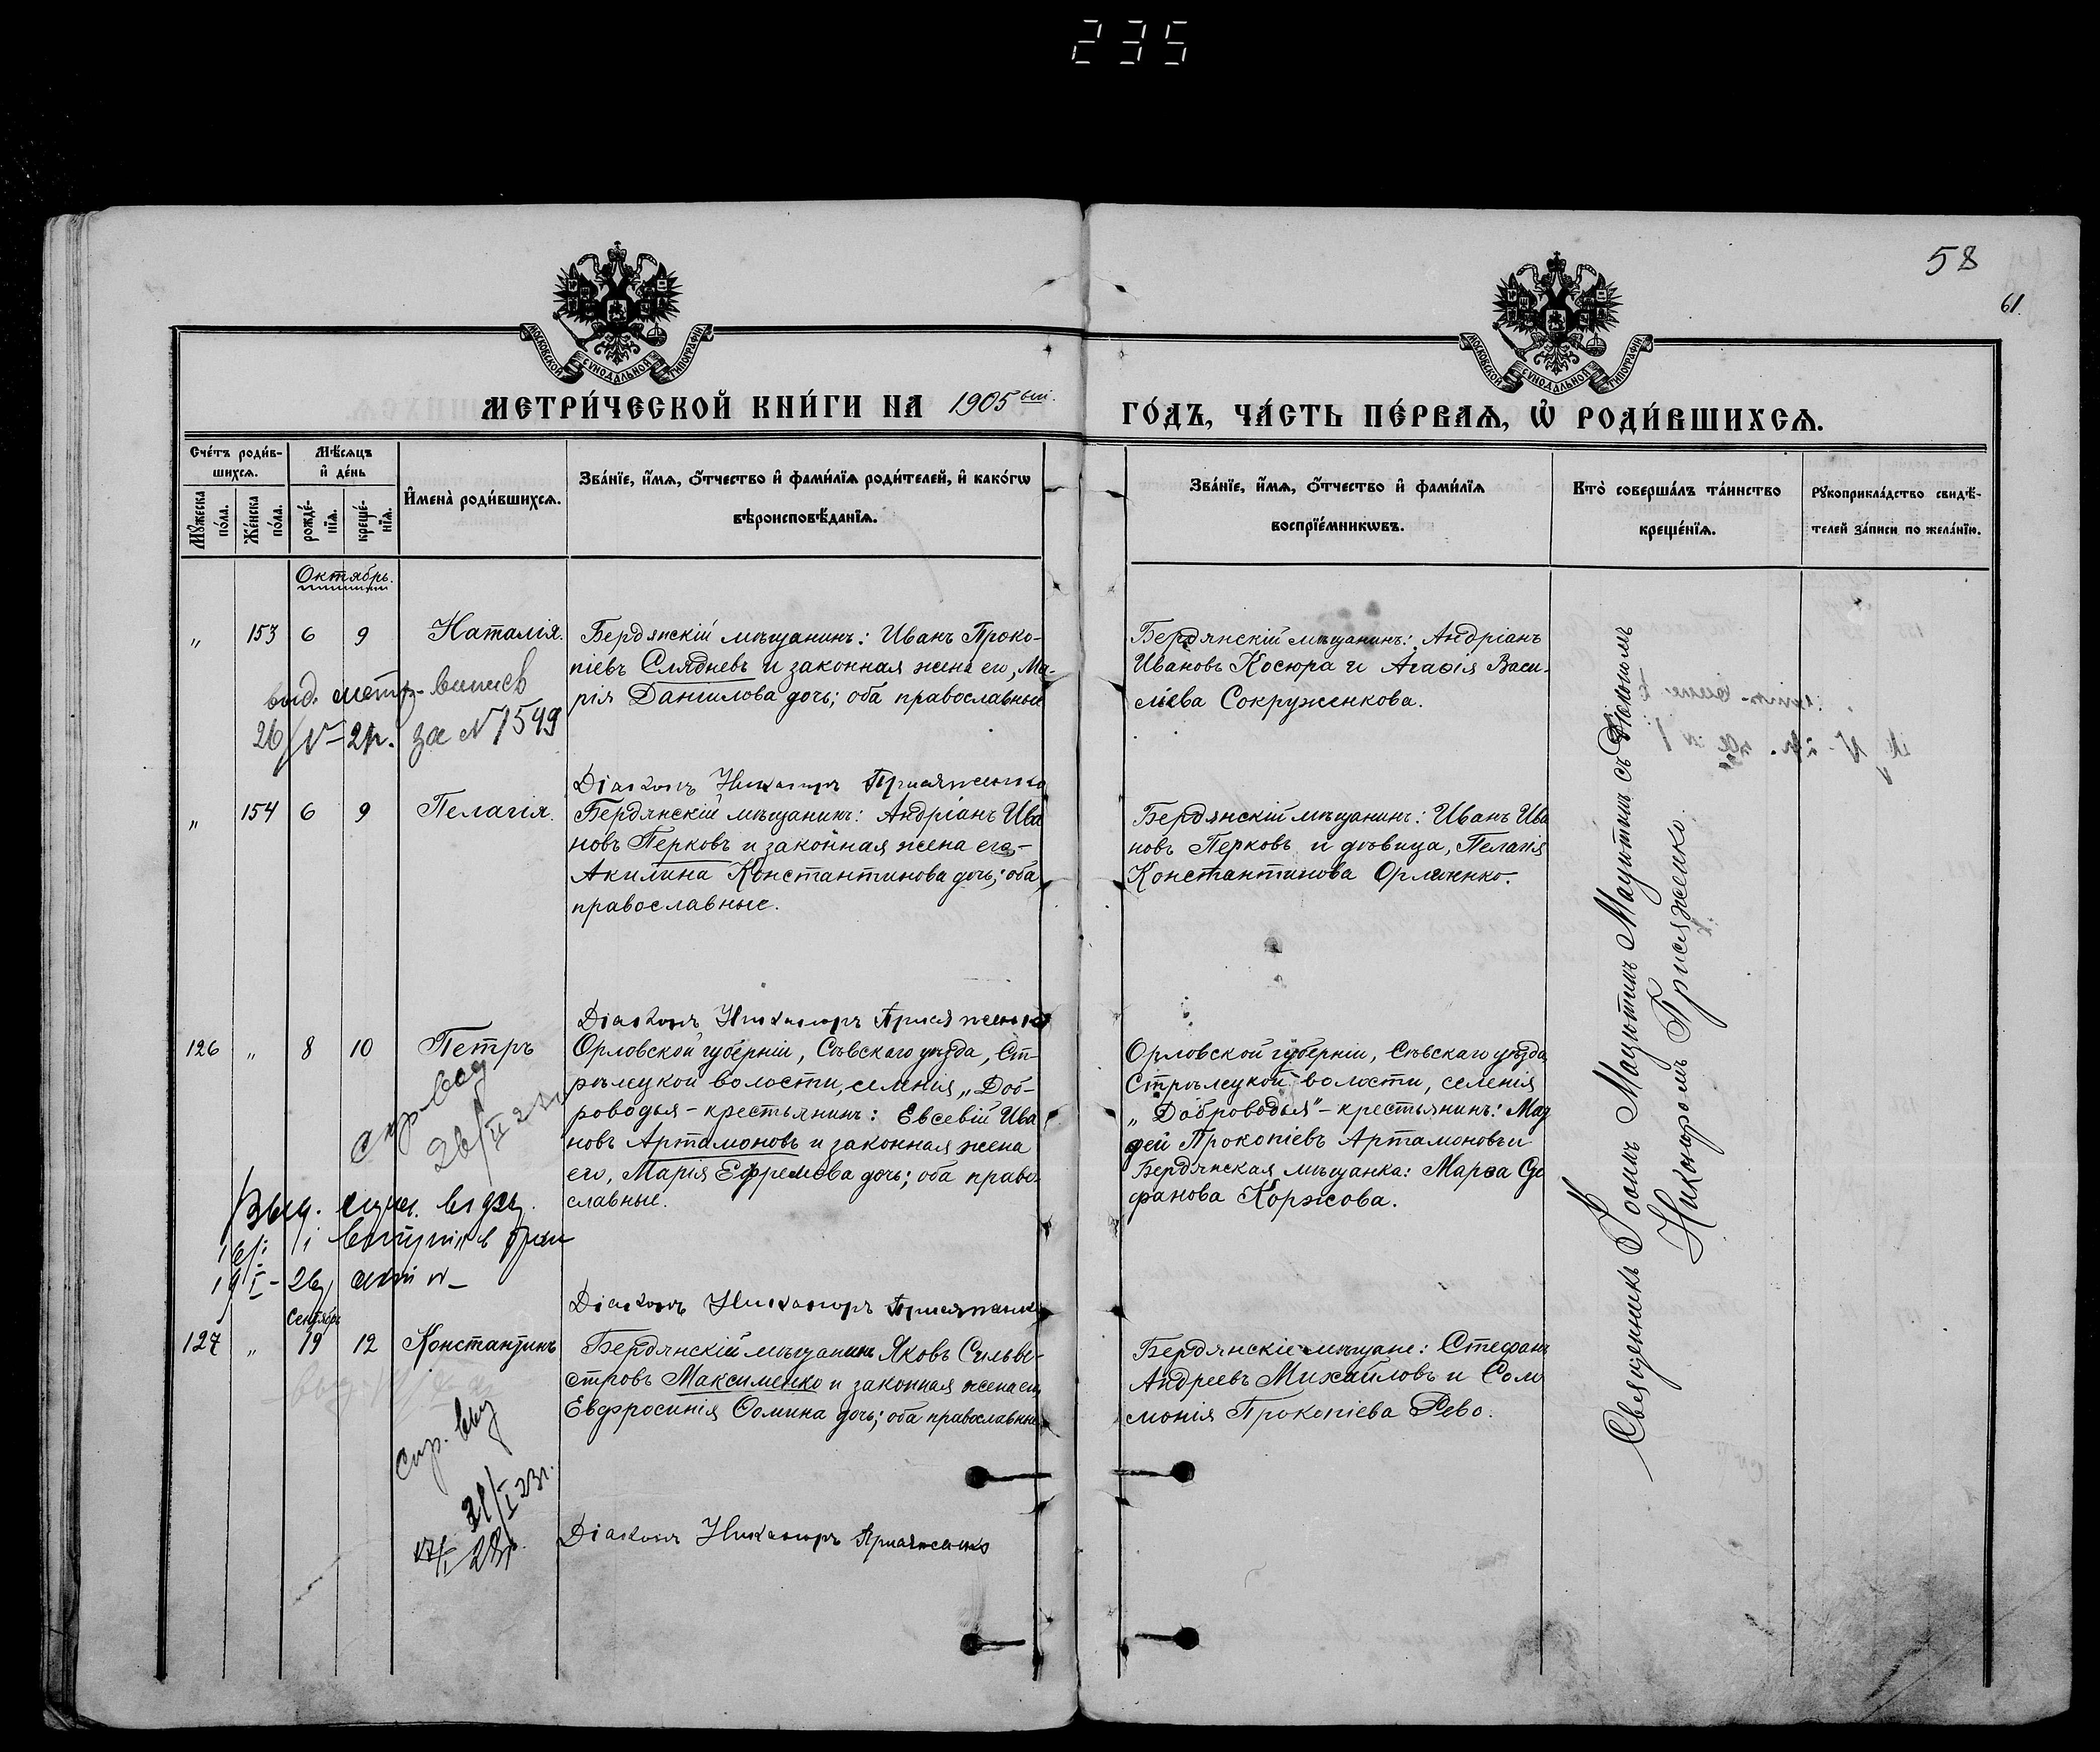 235
58
61.
МОСКОВСКОЙ СѴНОДАЛЬНОЙ ТИПОГРАФІИ
МОСКОВСКОЙ СѴНОДАЛЬНОЙ ТИПОГРАФІИ
МЕТРИ́ЧЕСКОЙ КНИ́ГИ НА 1905 ый.
ГО́ДЪ, ЧА́СТЬ ПЕ́РВАѦ, Ѡ҆ РОДИ́ВШИХСѦ.
Сче́тъ роди́в-
шихсѧ.
Мѣ́сяцъ
и҆ де́нь
Мꙋ́жеска
по́ла.
Же́нска
по́ла.
рожде́-
нїѧ.
креще́-
нїѧ.
И҆мена̀ роди́вшихсѧ.
Зва́нїе, и҆́мѧ, ѻ҆́тчество и҆ фами́лїѧ роди́телей, и҆ како́гѡ
вѣроисповѣ́данїѧ.
Зва́нїе, и҆́мѧ, ѻ҆́тчество и҆ фами́лїѧ
воспрїе́мникѡвъ.
Кто̀ соверша́лъ та́инство
креще́нїѧ.
Рꙋкоприкла́дство свидѣ́-
телей за́писи по жела́нїю.
Октябрь.
„ 153 6 9 Наталія.
Бердянскій мѣщанинъ: Иванъ Проко-
піевъ Слядневъ и законная жена его, Ма-
рія Данилова дочь; оба православные
Бердянскій мѣщанинъ: Андріанъ
Ивановъ Косюра и Агаѳія Васи-
ліева Сокруженкова.
выд. метр. выпись
26/V-2 г. за N 1599
Діаконъ Никаноръ Присяженко
„ 154 6 9 Пелагія.
Бердянскій мѣщанинъ: Андріанъ Ива
новъ Перковъ и законная жена его-
Акилина Константинова дочь; оба
православные.
Бердянскій мѣщанинъ: Иванъ Ива
новъ Перковъ и дѣвица, Пелагія
Константинова Орленко.
Діаконъ Никаноръ Присяженко
126 „ 8 10 Петръ
Орловской губерніи, Сѣвскаго уѣзда, Ст-
рѣлецкой волости, селенія „Доб-
роводья - крестьянинъ: Евсевій Ива
новъ Артамоновъ и законная жена
его, Марія Ефремова дочь; оба право-
славные.
Орловской губерніи, Сѣвскаго уѣзда
Стрѣлецкой волости, селенія
„Доброводья" - крестьянинъ:
Прокопіевъ Артамоновъ и
Бердянская мѣщанка: Марѳа Сте
фанова Коржова.
спр. выд
26/II 23
19/I - 26
Діаконъ Никаноръ Присяженко
Сентябрь
127 „ 19 12 Константинъ
Бердянскій мѣщанинъ Яковъ Сильве-
стровъ Максименко и законная жена его
Евфросинія Ѳомина дочь; оба православные
Бердянскіе мѣщане: Стефанъ
Андреевъ Михайловъ и Соло
монія Прокопіева Рево.
спр. выд
31/I 23 г.
17/I 28 г.
Діаконъ Никаноръ Присяженко
Священникъ съ Діакономъ
Никаноромъ Присяженко.